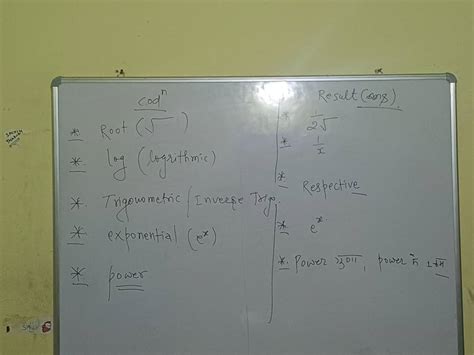 codⁿ
* Root (√ )
* log (logrithmic)
* Trigonometric / Inverse Trigo.
* exponential (eˣ)
* power
Result (ans)
* 1/2√
* 1/x
* Respective
* eˣ
* Power, power